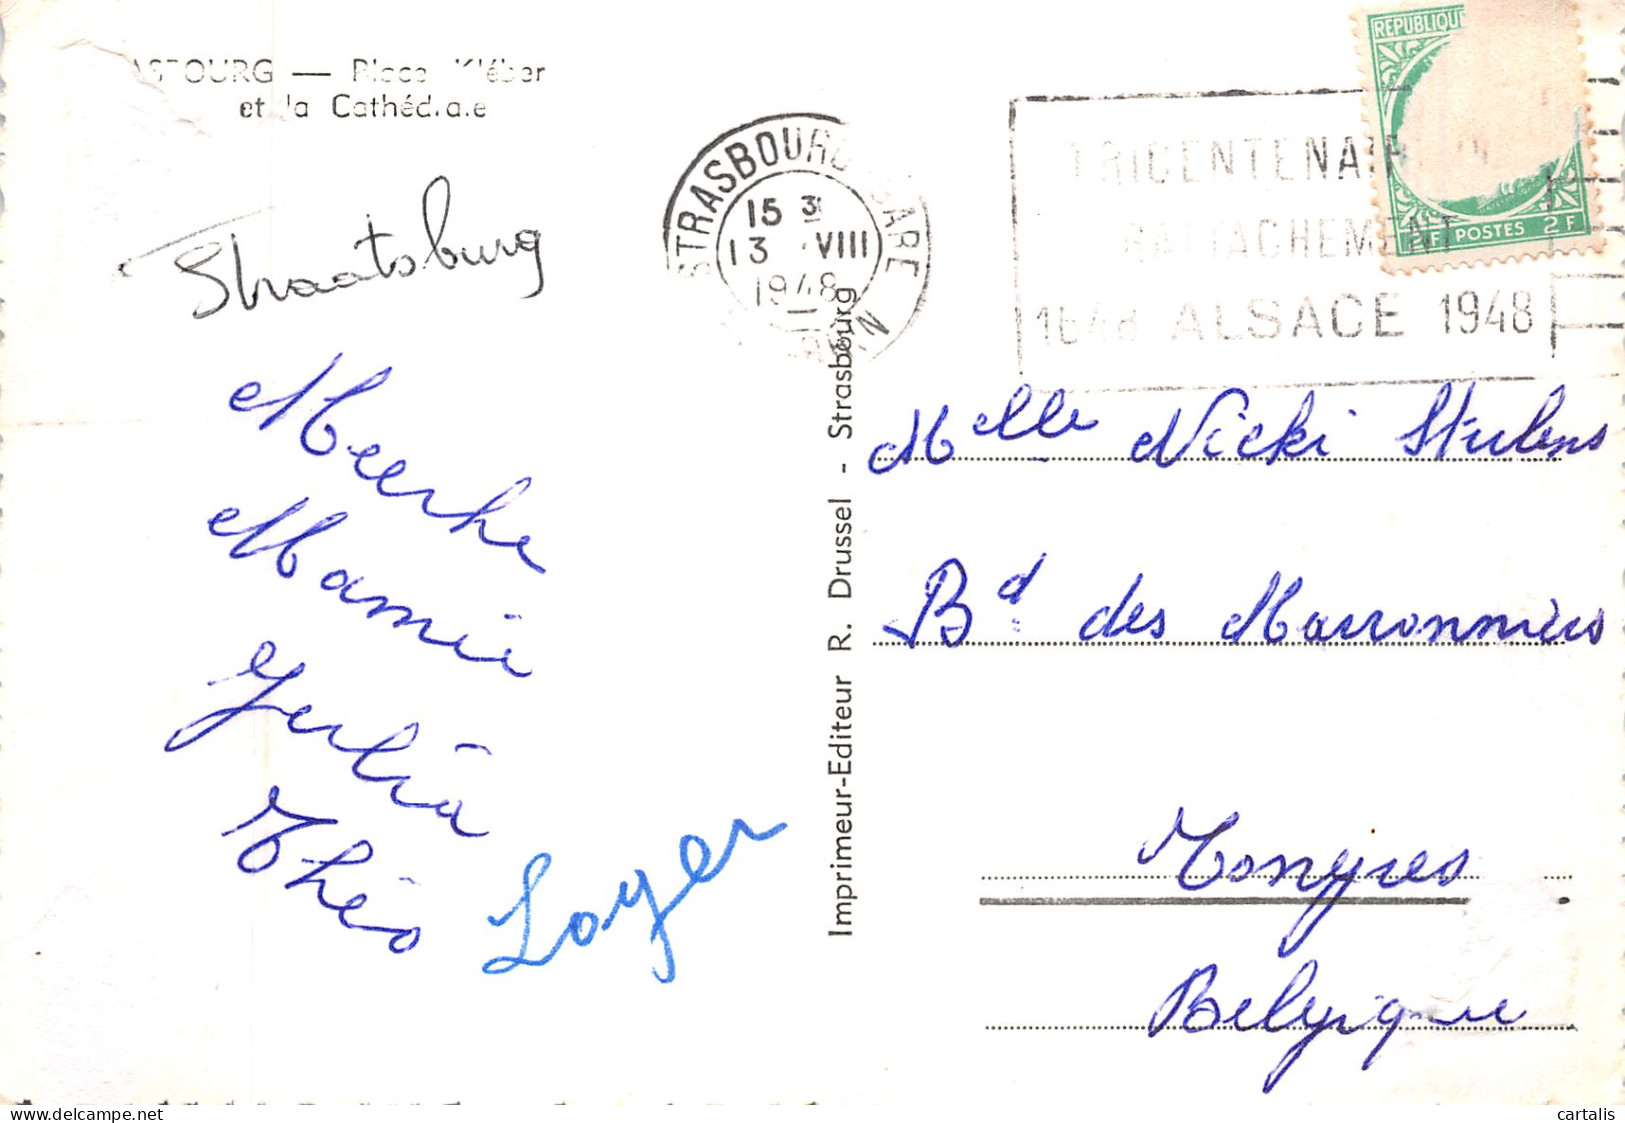 STRASBOURG — Place Kléber
et la Cathédrale
Straatsburg
Meerke
Mamie
Julia
Théo
Loyer
STRASBOURG GARE
15 3
13 VIII
1948
TRICENTENAIRE DU
RATTACHEMENT
1648 ALSACE 1948
REPUBLIQUE
2F POSTES 2F
Imprimeur-Editeur R. Drussel - Strasbourg
Melle Nicki Stulens
Bd des Marronniers
Tongres
Belgique
cartalis